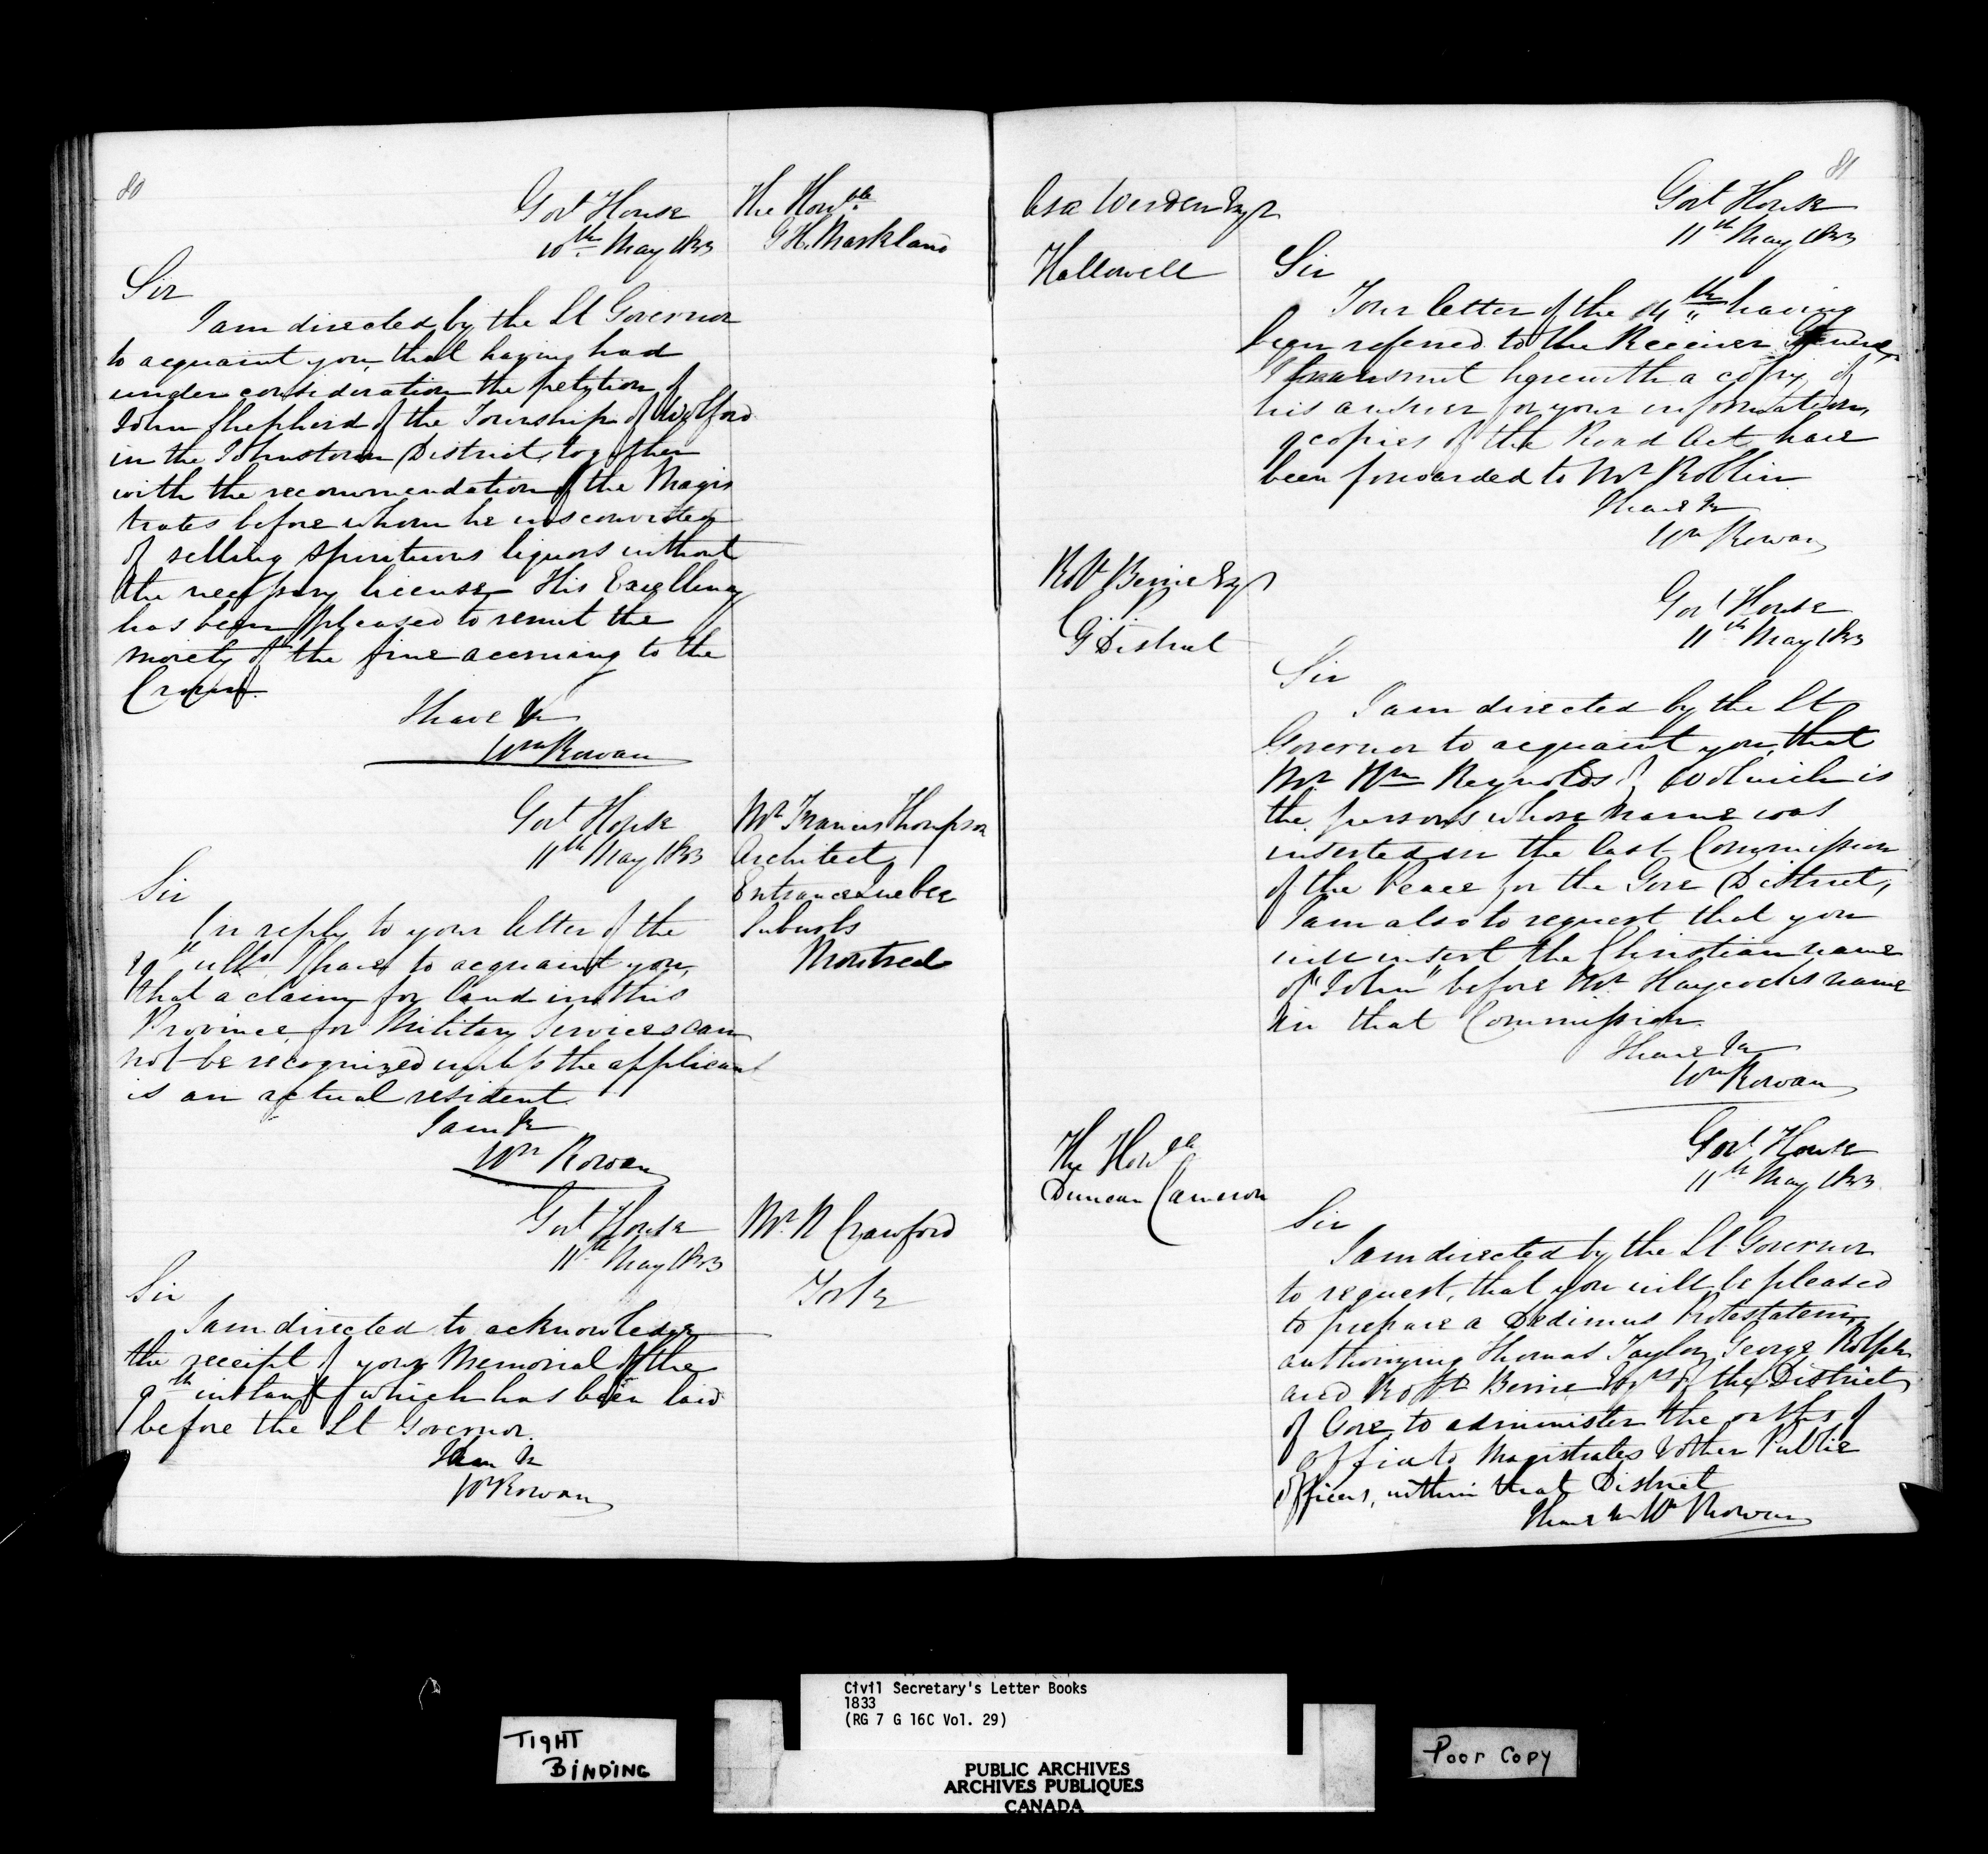 80
Govt House
10th May 1833
The Honble
G H. Markland
Sir
I am directed by the Lt Governor
to acquaint you, that having had
under consideration the petition of
John Shepherd of the Township of Wolford
in the Johnstown District, together
with the recommendation of the Magis
trates before whom he was convicted
of selling spirituous liquors without
the necessary license His Excellency
has been pleased to remit the
moiety of the fine accruing to the
Crown.
I have &c
Wm Rowan
Govt House
11th May 1833
Mr Francis Thompson
Architect
Entrance Quebec
Suburbs
Montreal
Sir
In reply to your letter of the
ulto I have to acquaint you,
that a claim for land in this
Province, for Military Services can
not be recognized unless the applicant
is an actual resident.
I am &c
Wm Rowan
Govt House
11th May 1833
Mr. N Crawford
York
Sir
I am directed to acknowledge
the receipt of your Memorial of the
9th instant which has been laid
before the Lt Governor.
I am &c
Wm Rowan
81
Asa Werden Esqr
Hallowell
Govt House
11th May 1833
Sir
Your letter of the having
been referred to the Receiver General
I transmit herewith a copy of
his answer for your information,
copies of the Road Act have
been forwarded to Mr Roblin
I have &c
Wm Rowan
Robt Berrie Esqr
G District
Govt House
11th May 1833
Sir
I am directed by the Lt
Governor to acquaint you, that
Mr Wm Reynolds of Woolwich is
the person whose name was
inserted in the last Commission
of the Peace for the Gore District,
I am also to request that you
will insert the Christian name
of "John" before Mr Haycock's name
in that Commission.
I have &c
Wm Rowan
The Honble
Duncan Cameron
Govt House
11th May 1833
Sir
I am directed by the Lt Governor
to request, that you will be pleased
to prepare a Dedimus Potestatem,
authorizing Thomas Taylor, George Rolph
and Robt Berrie Esqrs of the District
of Gore, to administer the oaths of
office to Magistrates & other Public
Officers, within that District
I have &c Wm Rowan
TIGHT
BINDING
Civil Secretary's Letter Books
1833
(RG 7 G 16C Vol. 29)
PUBLIC ARCHIVES
ARCHIVES PUBLIQUES
CANADA
Poor Copy